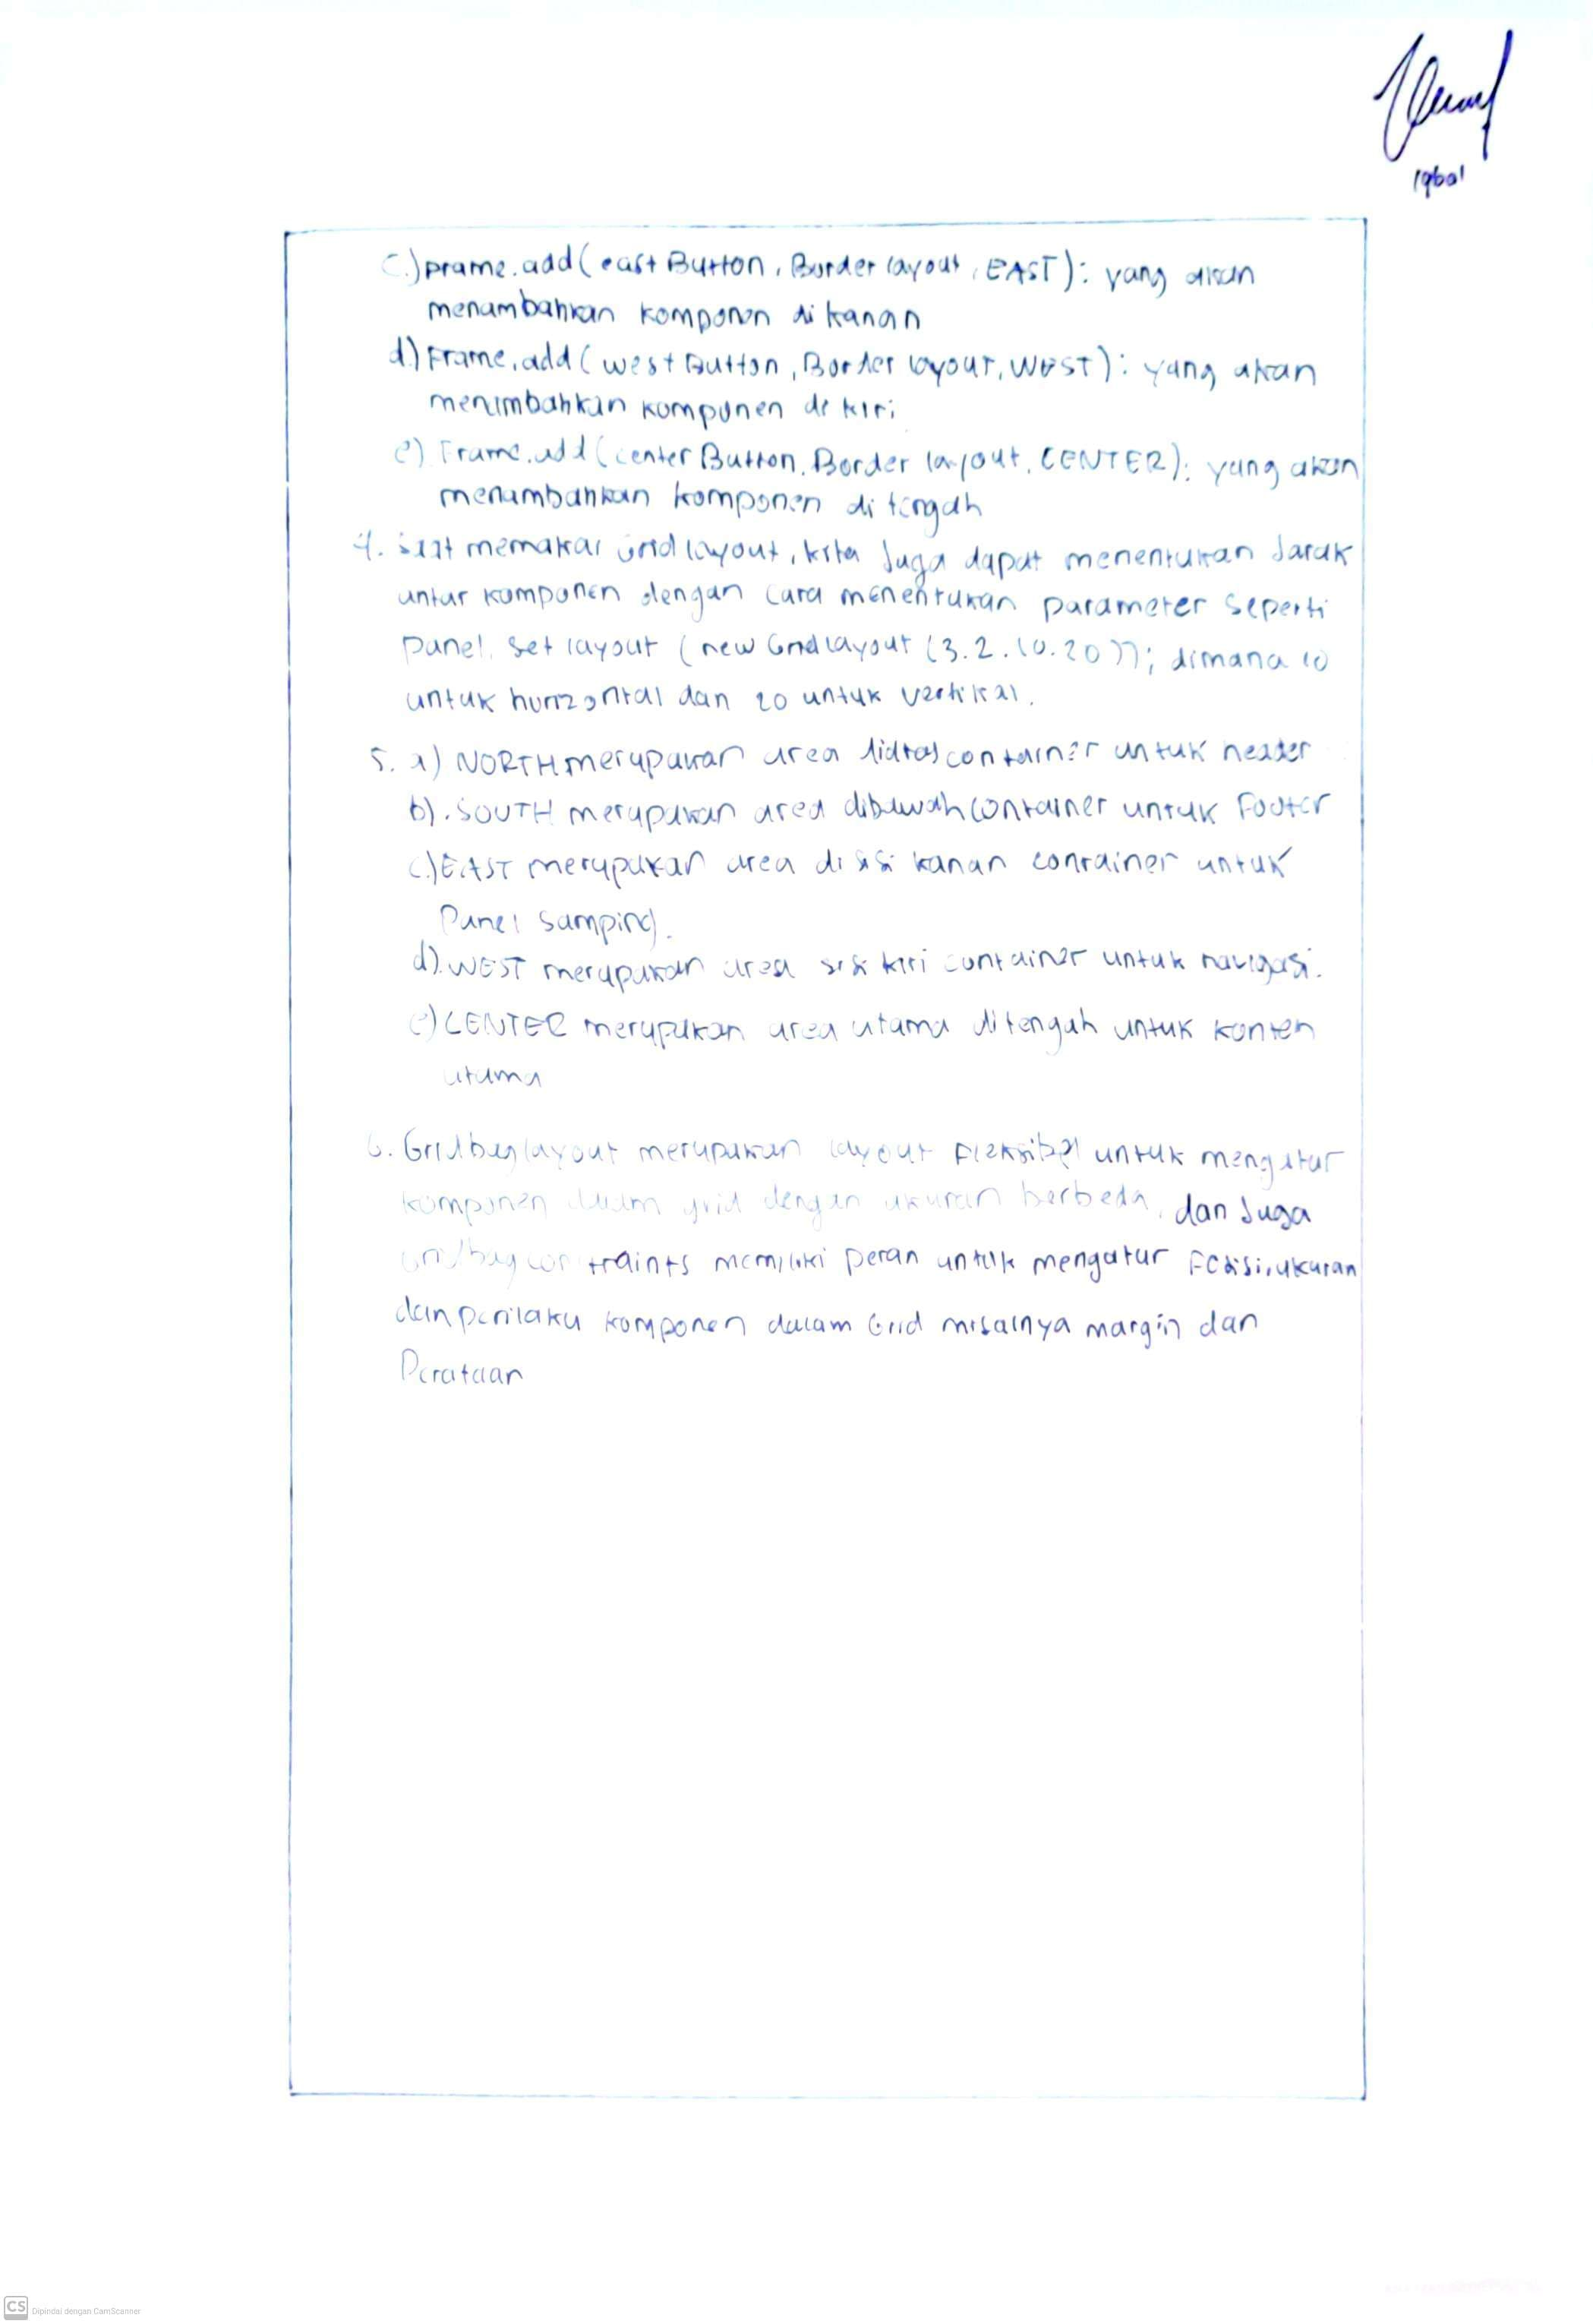 Iqbal
c.) Frame.add(eastButton, Border layout, EAST): yang akan
menambahkan komponen di kanan
d.) Frame.add(westButton, Border layout, WEST): yang akan
menimbahkan komponen di kiri
e) Frame.add(centerButton, Border layout, CENTER): yang akan
menambahkan komponen di tengah
4. Saat memakai Grid layout, kita Juga dapat menentukan Jarak
antar komponen dengan cara menentukan parameter seperti
Panel. set layout (new Gridlayout (3.2.10.20)); dimana 10
untuk horizontal dan 20 untuk vertikal.
5. a) NORTH merupakan area container untuk header
b). SOUTH merupakan area dibawah container untuk Footer
c.) EAST merupakan area di sisi kanan container untuk
Panel samping.
d). WEST merupakan area sisi kiri container untuk navigasi.
e) CENTER merupakan area utama ditengah untuk konten
utama
6. Gridbaglayout merupakan layout Fleksibel untuk mengatur
komponen dalam grid dengan ukuran berbeda, dan Juga
Gridbagconstraints memiliki peran untuk mengatur ukuran
dan perilaku komponen dalam Grid misalnya margin dan
Perataan
CS Dipindai dengan CamScanner